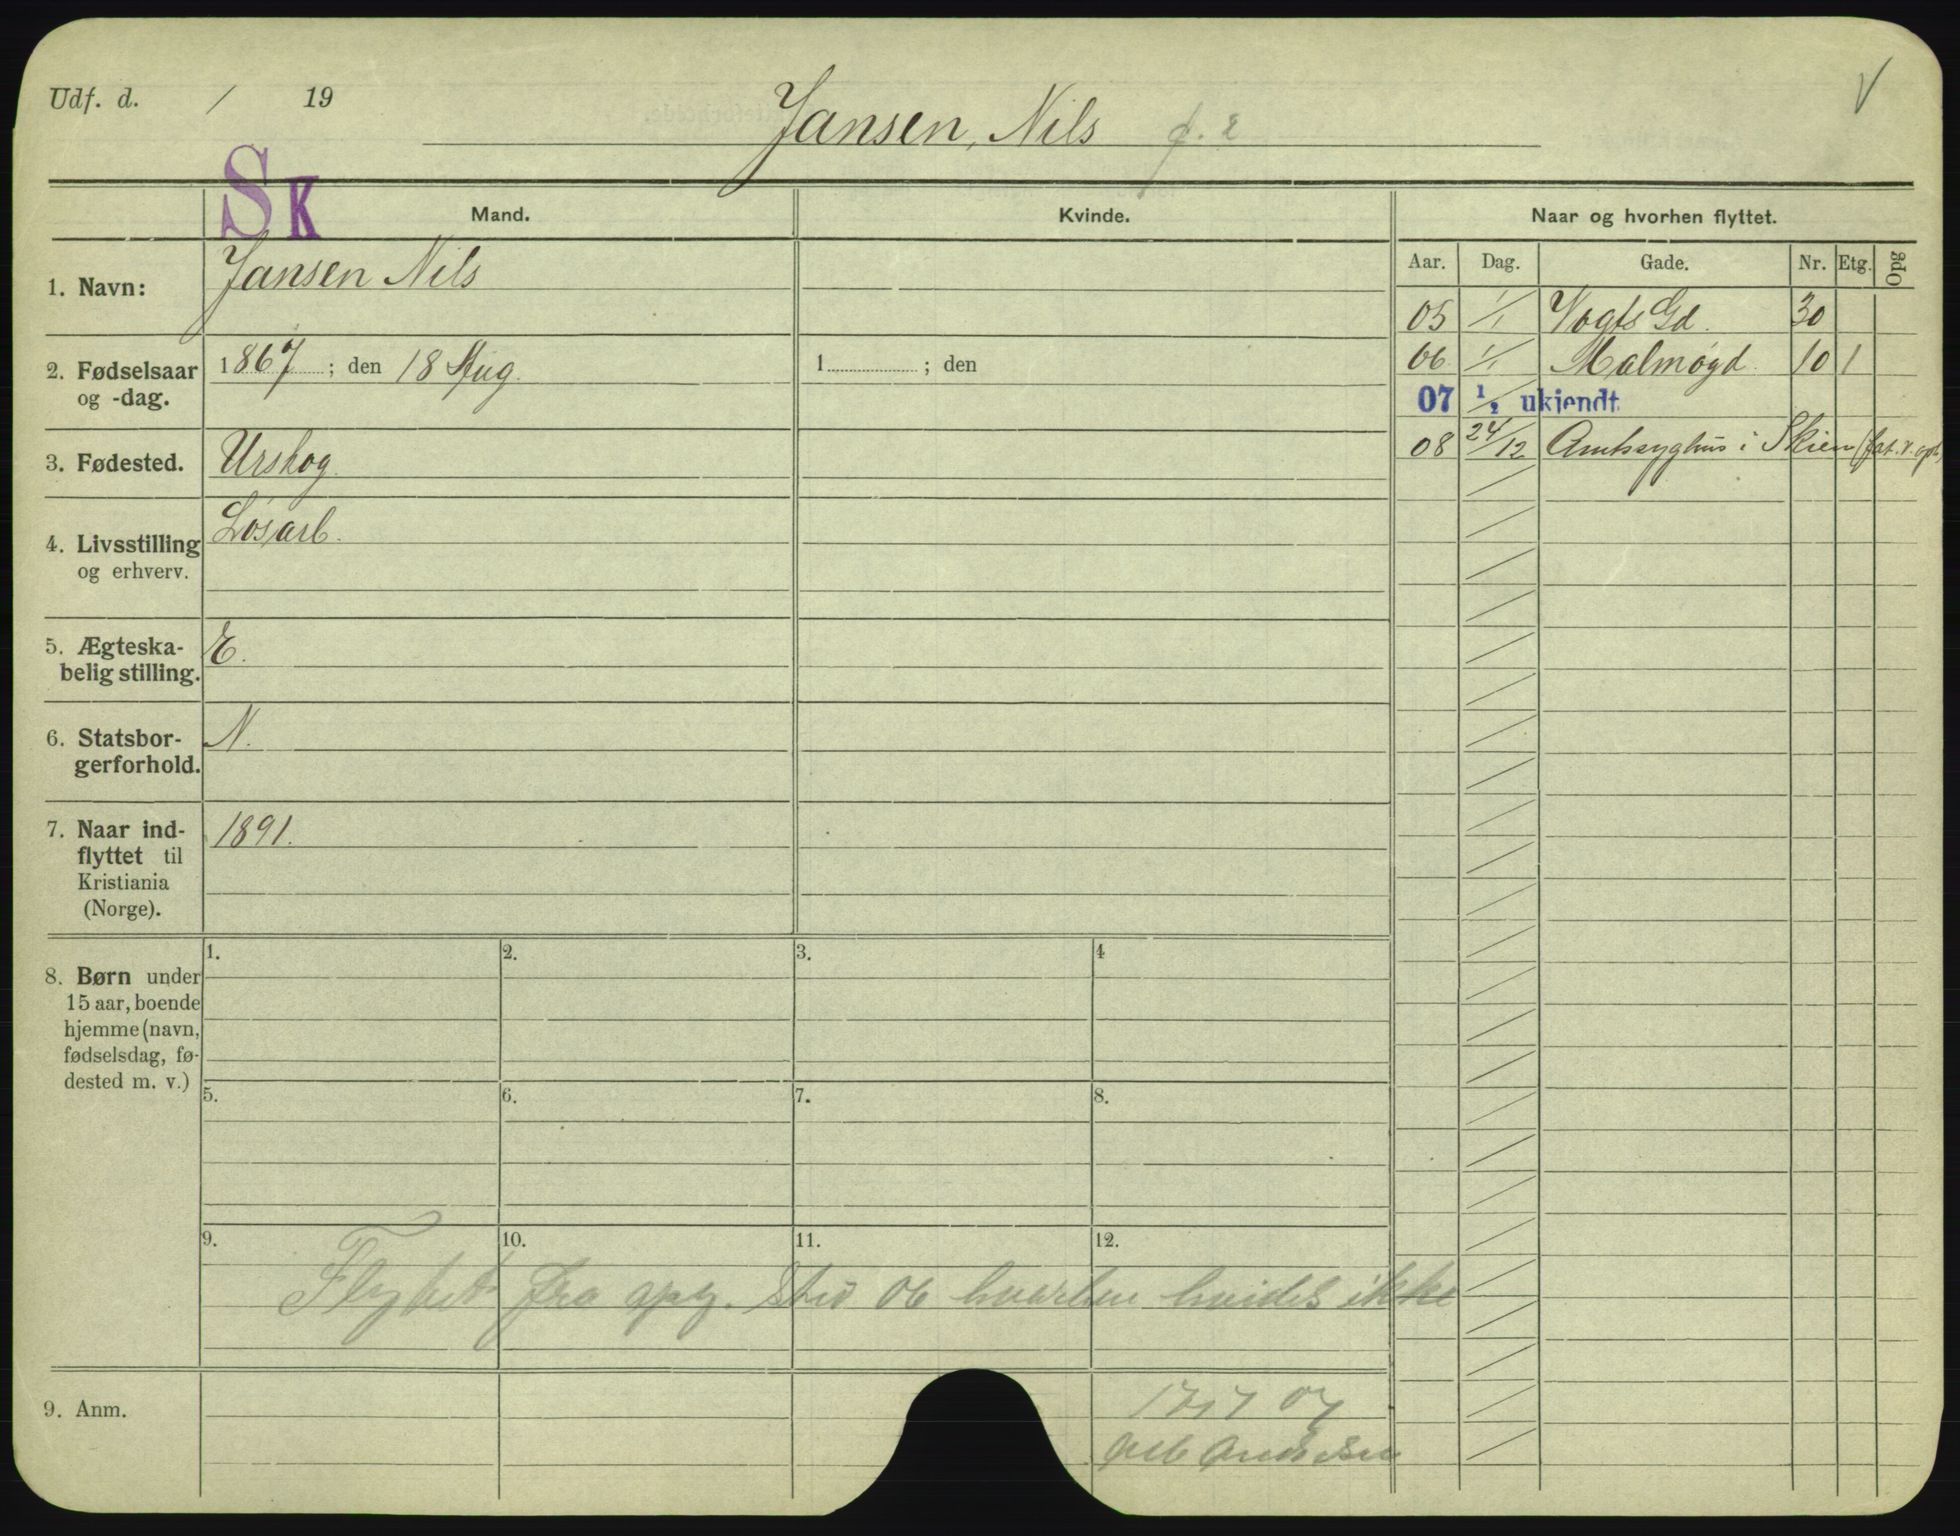 Udf. d. / 19
Jansen, Nils
V
SK
Mand.
Kvinde.
Naar og hvorhen flyttet.
Aar. Dag. Gade. Nr. Etg. Opg
1. Navn:
Jansen Nils
05 1/1 Vogts Gd. 30
06 1/1 Malmøgd. 10 1
07 1/2 ukjendt.
08 24/12 Amtssyghus i Skien
2. Fødselsaar
og -dag.
1867 ; den 18 Aug.
1 ; den
3. Fødested.
Urskog
4. Livsstilling
og erhverv.
Løsarb.
5. Ægteska-
belig stilling.
E.
6. Statsbor-
gerforhold.
N.
7. Naar ind-
flyttet til
Kristiania
(Norge).
1891.
8. Børn under
15 aar, boende
hjemme (navn,
fødselsdag, fø-
dested m. v.)
1. 2. 3. 4
5. 6. 7. 8.
9. 10. 11. 12.
Flyttet fra opg. sted 06 hvorhen hvides ikke
9. Anm.